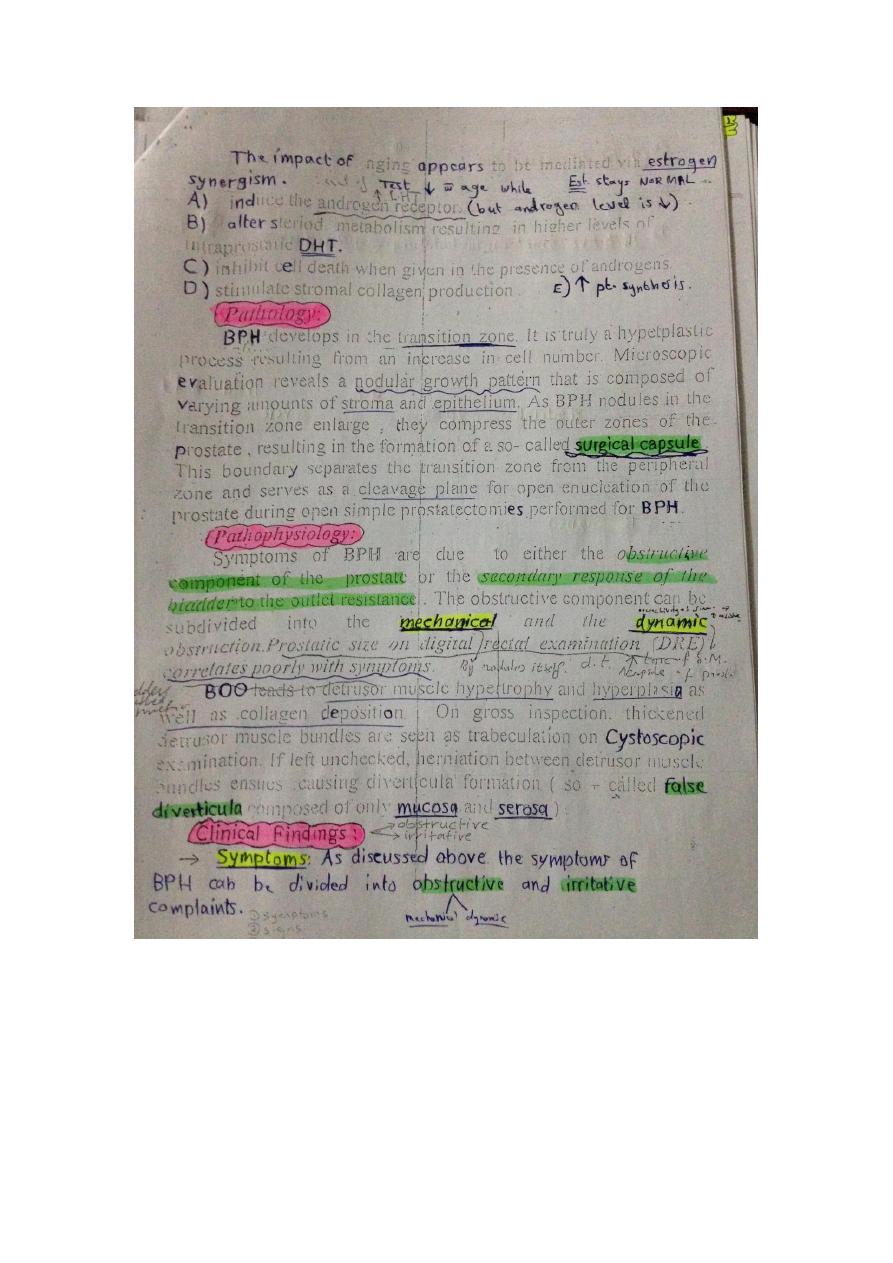 The impact of aging appears to be mediated via estrogen
synergism. Test ↓ age while Est. stays NORMAL
A) induce the androgen receptor. (but androgen level is ↓)
B) alter steriod metabolism resulting in higher levels of
intraprostatic DHT.
C) inhibit cell death when given in the presence of androgens.
D) stimulate stromal collagen production. E) ↑ pt. synthesis.
Pathology:
BPH develops in the transition zone. It is truly a hypetplastic
process resulting from an increase in cell number. Microscopic
evaluation reveals a nodular growth pattern that is composed of
varying amounts of stroma and epithelium. As BPH nodules in the
transition zone enlarge , they compress the outer zones of the
prostate , resulting in the formation of a so- called surgical capsule
This boundary separates the transition zone from the peripheral
zone and serves as a cleavage plane for open enucleation of the
prostate during open simple prostatectomies performed for BPH.
Pathophysiology:
Symptoms of BPH are due to either the obstructive
component of the prostate or the secondary response of the
bladder to the outlet resistance. The obstructive component can be
subdivided into the mechanical and the dynamic
obstruction. Prostatic size on digital rectal examination (DRE)
correlates poorly with symptoms. By nodules itself. d.t. ↑ tone of S.M.
BOO leads to detrusor muscle hypertrophy and hyperplasia as
well as collagen deposition. On gross inspection, thickened
detrusor muscle bundles are seen as trabeculation on Cystoscopic
examination. If left unchecked, herniation between detrusor muscle
bundles ensues causing diverticula formation ( so - called false
diverticula composed of only mucosa and serosa)
Clinical Findings: obstructive
irritative
→ Symptoms: As discussed above the symptoms of
BPH can be divided into obstructive and irritative
complaints. mechanical dynamic
① symptoms
② signs